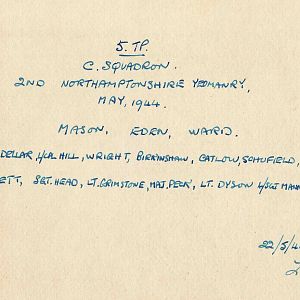 5. TP.
C. SQUADRON.
2ND NORTHAMPTONSHIRE YEOMANRY,
MAY, 1944.
MASON, EDEN, WARD.
DELLAR, L/CPL HILL, WRIGHT, BIRKINSHAW, CATLOW, SCHOFIELD,
ETT, SGT. HEAD, LT. GRIMSTONE, MAJ. PECK, LT. DYSON L/SGT
22/5/4